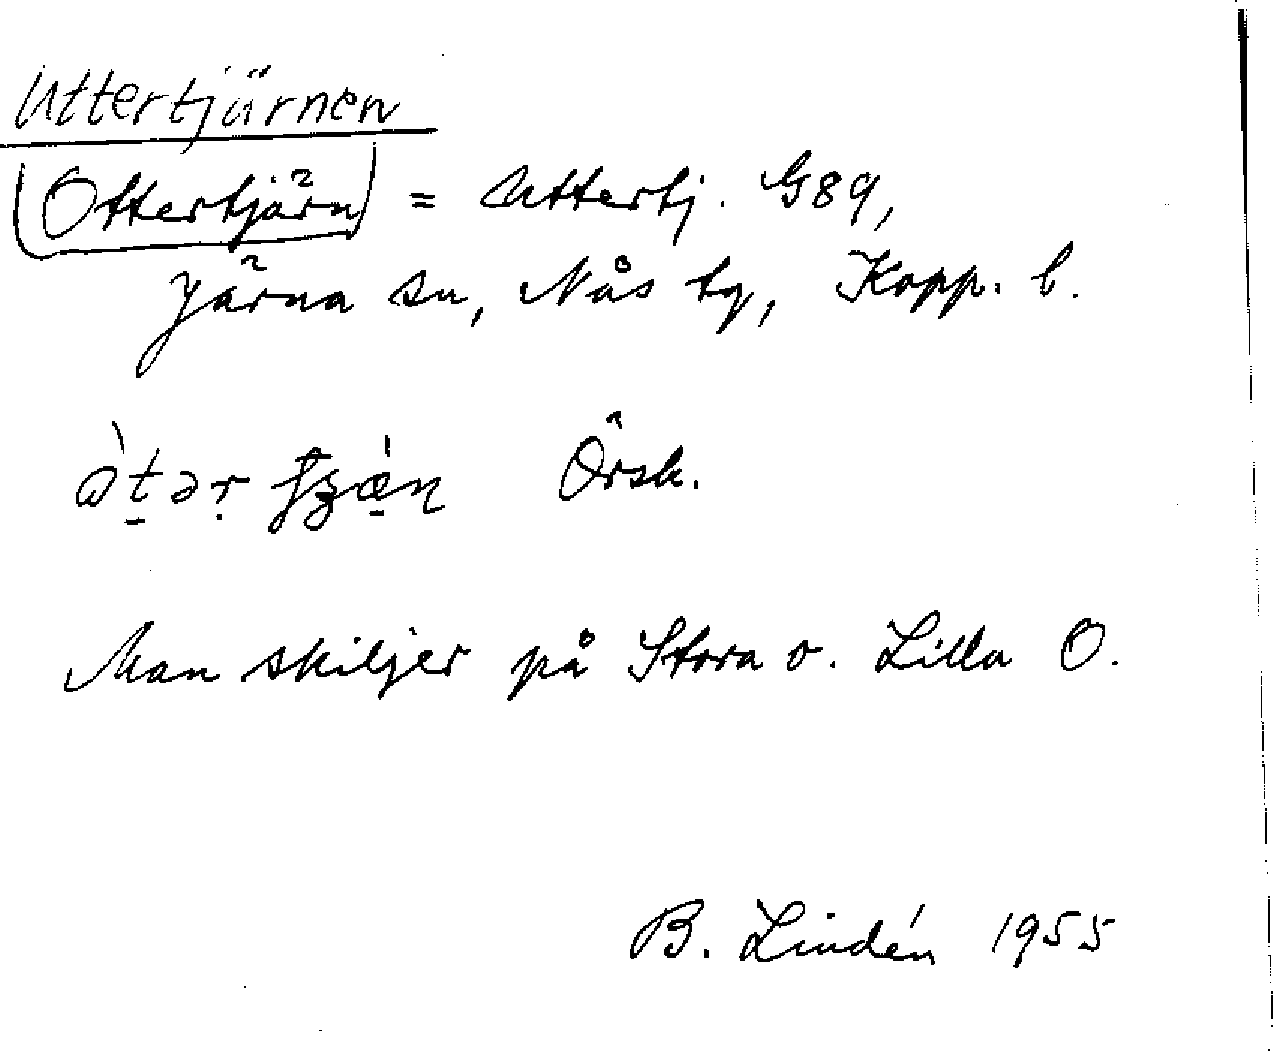 Uttertjärnen
Ottertjärn = Uttertj. G89,
Järna sn, Nås tg, Kopp. l.
Örsk.
Man skiljer på Stora o. Lilla O.
B. Lindén 1955